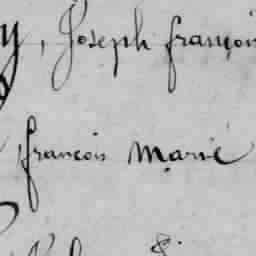 y, Joseph françois
françois Marie